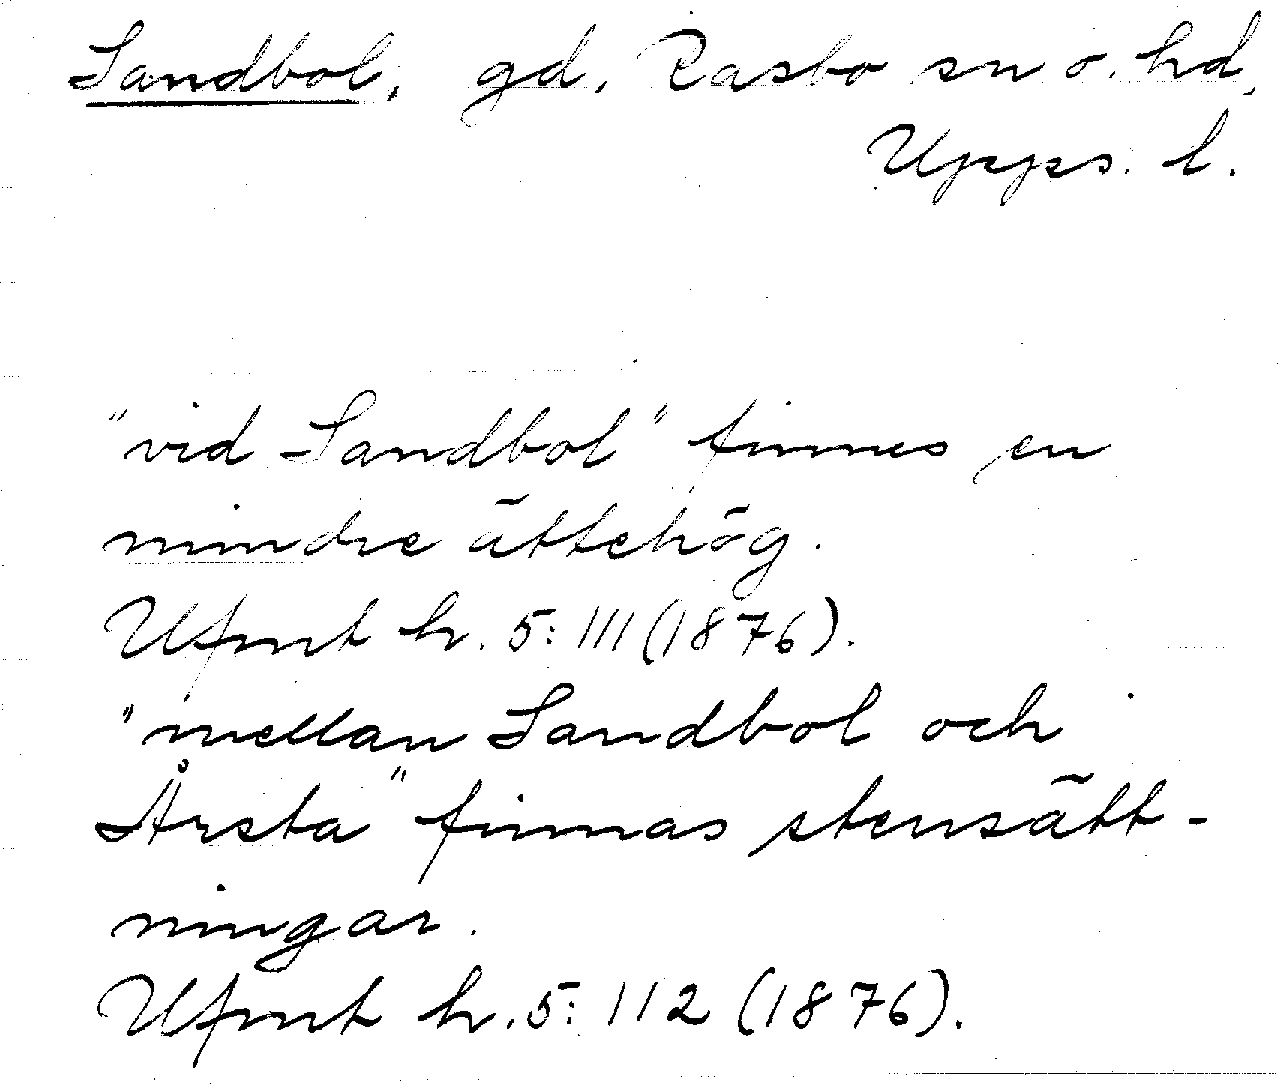 Sandbol, gd, Rasbo sn o. hd,
Upps. l.
"vid Sandbol" finnes en
mindre ättehög.
Ufmt h. 5: 111 (1876).
"mellan Sandbol och
Årsta" finnas stensätt-
ningar.
Ufmt h. 5: 112 (1876).